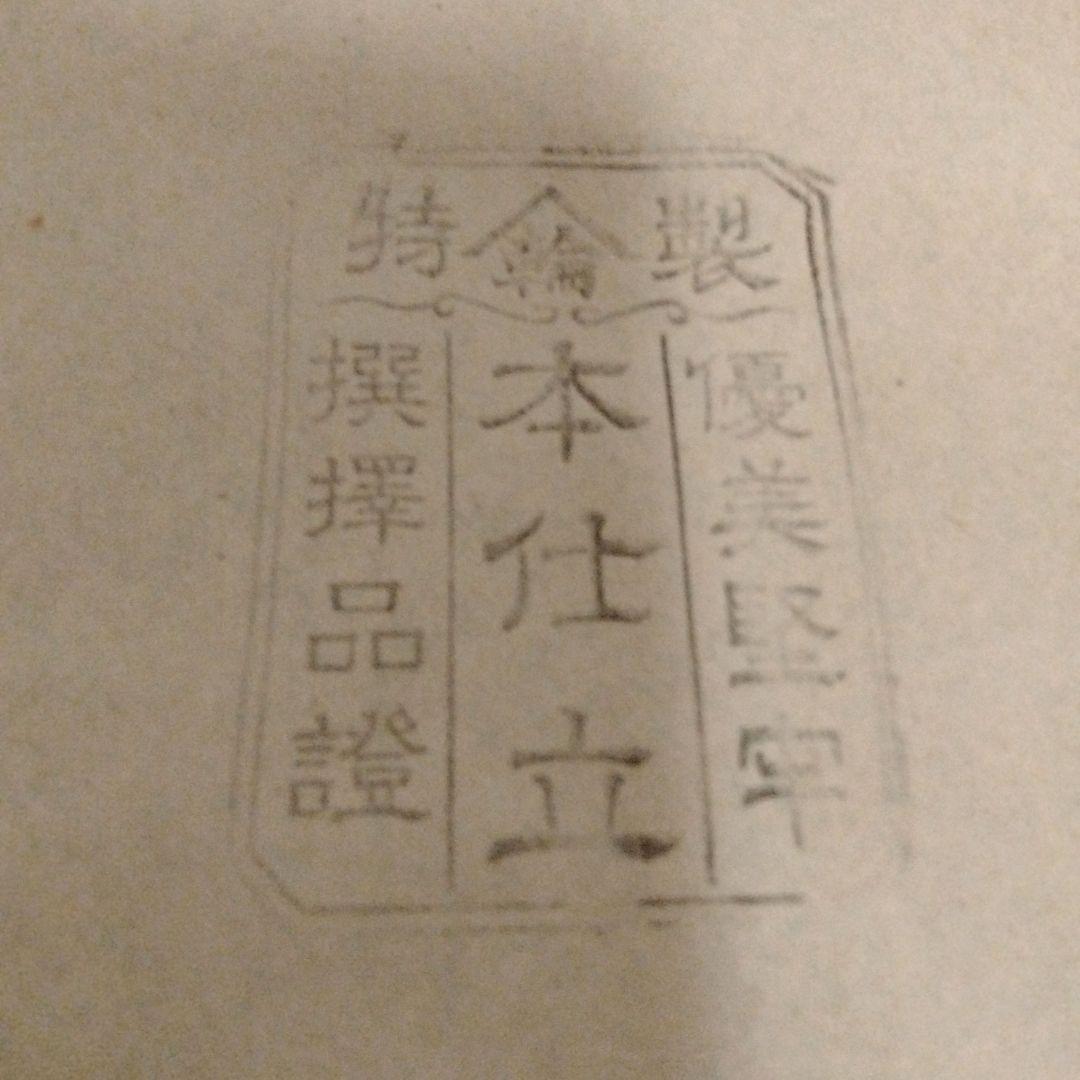 特 輪 製
優美堅牢
本仕立
撰擇品證